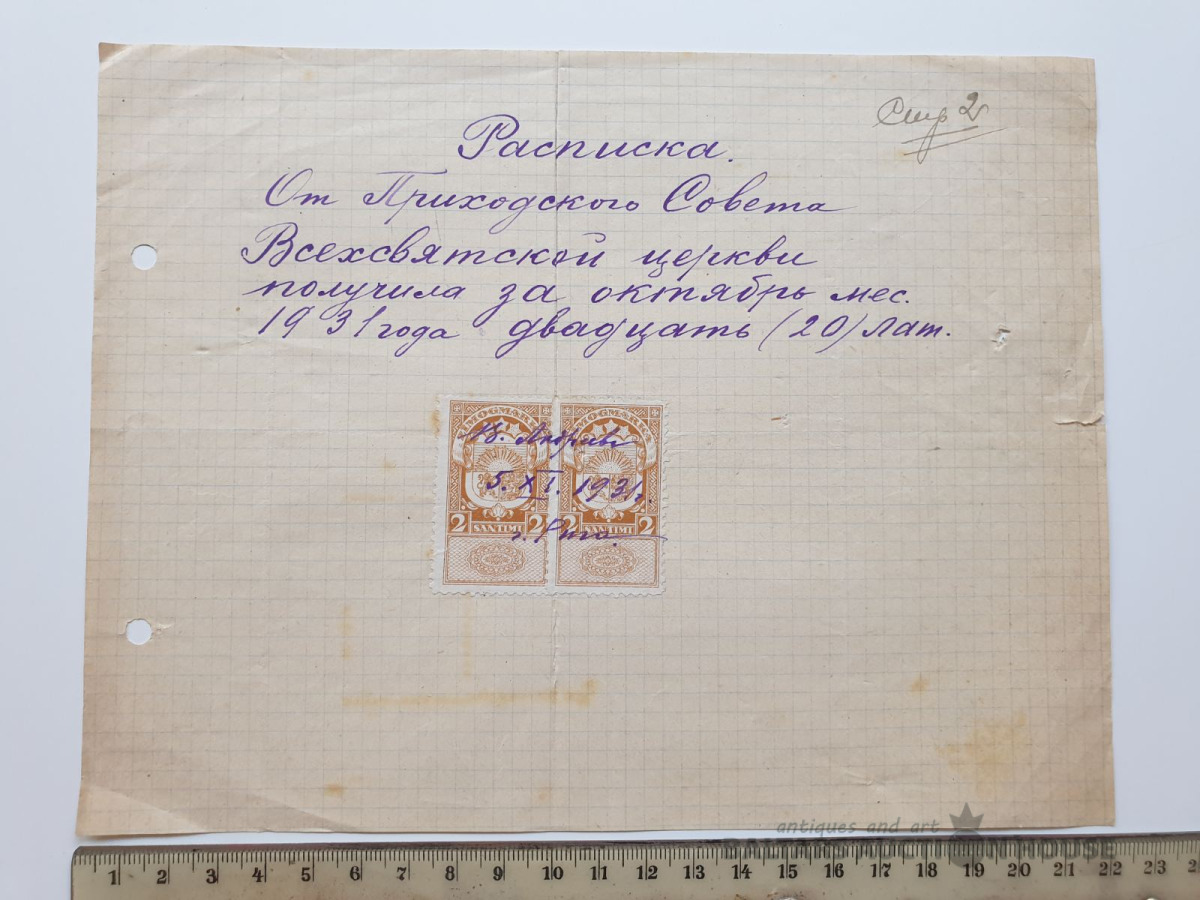 Стр 2
Расписка.
От Приходского Совета
Всехсвятской церкви
получила за октябрь мес.
1931 года двадцать (20) Лат.
ZIMOGMARKA ZIMOGMARKA
5. XI. 1931г.
2 SANTIMI 2 2 SANTIMI 2
г. Рига.
antiques and art
AUCTION HOUSE
1 2 3 4 5 6 7 8 9 10 11 12 13 14 15 16 17 18 19 20 21 22 23